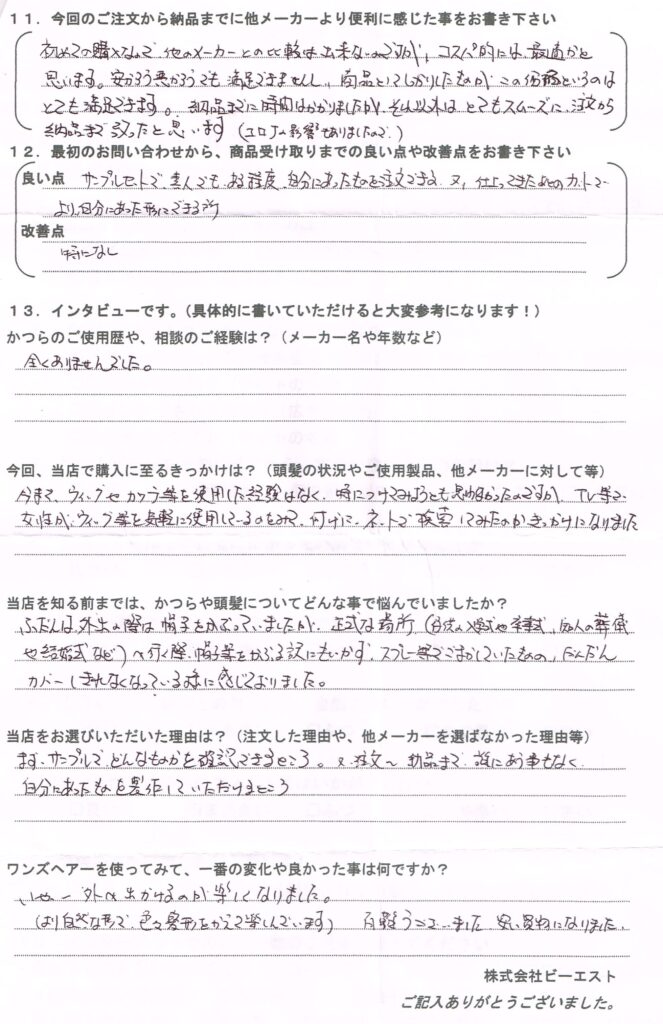 11．今回のご注文から納品までに他メーカーより便利に感じた事をお書き下さい
初めての購入なので、他のメーカーとの比較は出来ないのですが、コスパ的には、最適かと
思います。安かろう悪かろうでも満足できませんし、商品としてしっかりしたものが、この価格というのは
とても満足できます。納品までに時間はかかりましたが、それ以外は とてもスムーズに、注文から
納品まで 至ったと思います（コロナの影響もありましたので、）
12．最初のお問い合わせから、商品受け取りまでの良い点や改善点をお書き下さい
良い点 サンプルセットで、素人でも、ある程度、自分にあったものを注文できる、又、仕上ってきた後のカットで、
より、自分にあった形にできる所
改善点
特になし
13．インタビューです。（具体的に書いていただけると大変参考になります！）
かつらのご使用歴や、相談のご経験は？（メーカー名や年数など）
全くありませんでした。
今回、当店で購入に至るきっかけは？（頭髪の状況やご使用製品、他メーカーに対して等）
今まで、ウィッグやカツラ等を使用した経験はなく、特につけてみようとも思わなかったのですが、TV等で、
女性が、ウィッグ等を気軽に使用しているのをみて、何げに、ネットで検索してみたのがきっかけになりました
当店を知る前までは、かつらや頭髪についてどんな事で悩んでいましたか？
ふだんは、外出の際は帽子をかぶっていましたが、正式な場所（子供の入学式や卒業式、知人の葬儀
や結婚式など）へ行く際、帽子等をかぶる訳にもいかず、スプレー等でごまかしていたものの、だんだん
カバーしきれなくなっている様に感じておりました。
当店をお選びいただいた理由は？（注文した理由や、他メーカーを選ばなかった理由等）
まず、サンプルで どんなものかを確認できるところ。又、注文〜納品まで 誰にあう事もなく
自分にあったものを製作していただけるところ
ワンズヘアーを使ってみて、一番の変化や良かった事は何ですか？
外へ出かけるのが楽しくなりました。
（より自然な形で、色々髪形をかえて楽しんでいます） 良い買物になりました、
株式会社ビーエスト
ご記入ありがとうございました。